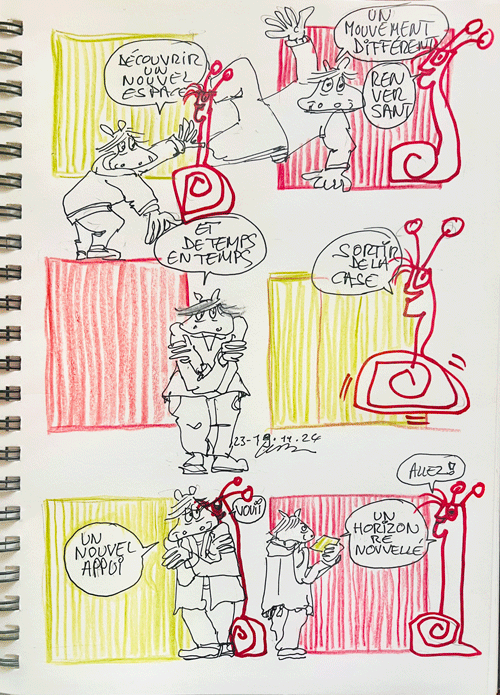 DÉCOUVRIR
UN
NOUVEL
ESPACE
UN
MOUVEMENT
DIFFÉRENT
REN
VER
SANT
ET
DE TEMPS
EN TEMPS
SORTIR
DE LA
CASE
23-19.11.24
UN
NOUVEL
APPUI
VOUI
ALLEZ!
UN
HORIZON
RE
NOUVELLE